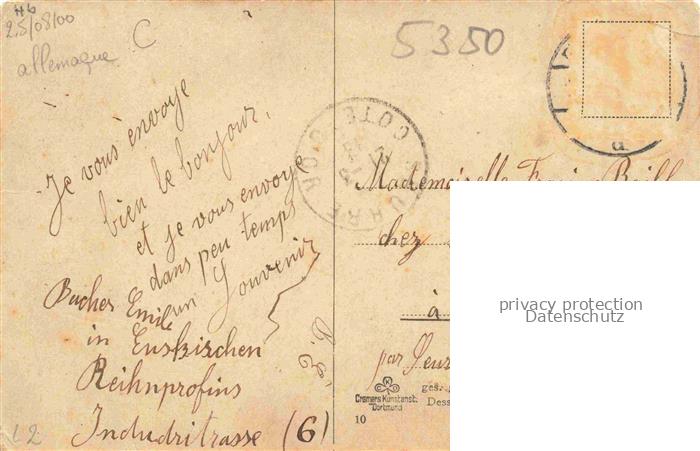 H6
25/08/00
allemagne
C
5350
Je vous envoye
bien le bonjour,
et je vous envoye
dans peu temps
un Souvenir
Bucher Emile
in Euskirchen
Reihnprofins
Indudritrasse (6)
B. E.
L2
COTE
D'OR
Mademoiselle
chez
à
par
privacy protection
Datenschutz
ges.
Cramers Kunstanst.
Dortmund
Dess
10